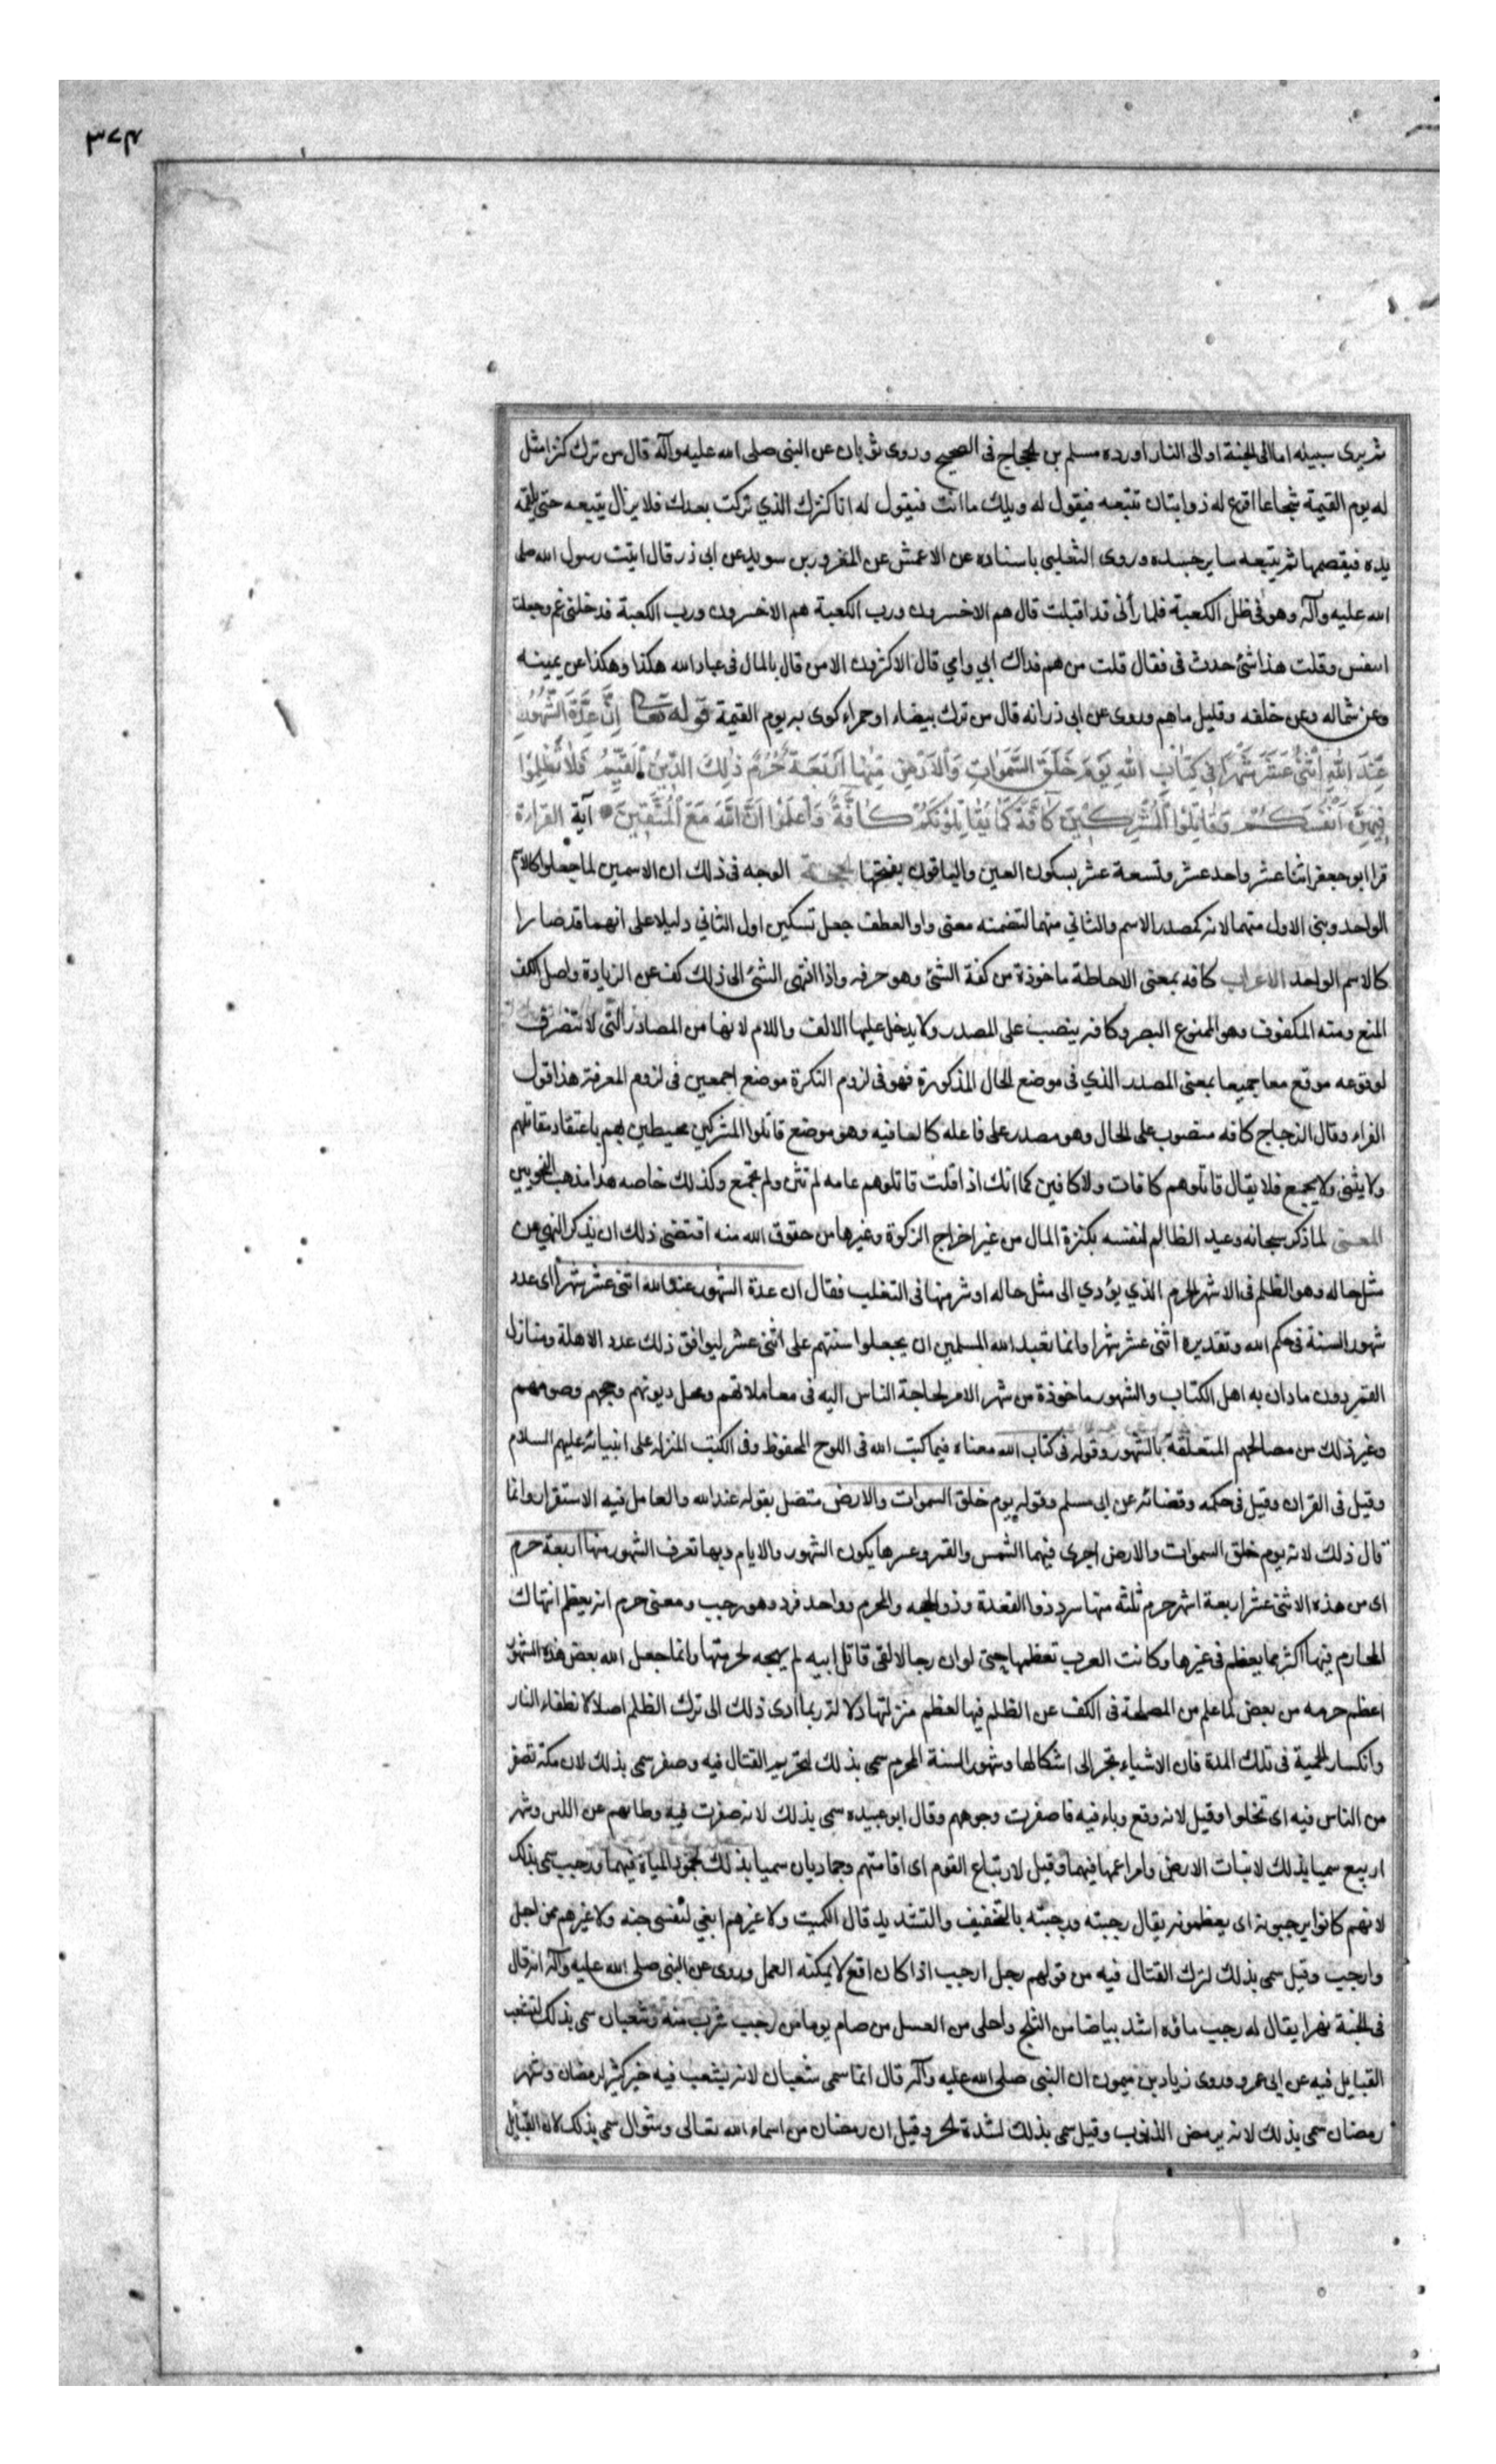 ٣٧٤
ثم يرى سبيله اما الى الجنة او الى النار اورده مسلم بن الحجاج فى الصحيح وروى ثوبان عن النبى صلى الله عليه وآله قال من ترك كنزا مثل
له يوم القيمة شجاعا اقرع له ذوابتان تتبعه فيقول له ويلك ما انت فيقول له انا كنزك الذي تركت بعدك فلا يزال يتبعه حتى يلقمه
يده فيقصمها ثم يتبعه ساير جسده وروى الثعلبى باسناده عن الاعمش عن المغرور بن سويد عن ابى ذر قال اتيت رسول الله صلى
الله عليه وآله وهو فى ظل الكعبة فلما رأنى قد اقبلت قال هم الاخسرون ورب الكعبة هم الاخسرون ورب الكعبة فدخلنى غم وجعلت
اتنفس وقلت هذا شئ حدث فى فقال قلت من هم فداك ابي وامي قال الاكثرون الا من قال بالمال فى عباد الله هكذا وهكذا عن يمينه
وعن شماله وعن خلفه وقليل ما هم وروى عن ابى ذر انه قال من ترك بيضاء او حمراء كوى به يوم القيمة قوله تعالى اِنَّ عِدَّةَ الشُّهُورِ
عِنْدَ اللهِ اثْنٰى عَشَرَ شَهْرًا فِى كِتَابِ اللهِ يَوْمَ خَلَقَ السَّمٰوَاتِ وَالْاَرْضَ مِنْهَا اَرْبَعَةٌ حُرُمٌ ذٰلِكَ الدّينُ الْقَيِّمُ فَلَا تَظْلِمُوا
فِيهِنَّ اَنْفُسَكُمْ وَقَاتِلُوا الْمُشْرِكِينَ كَافَّةً كَمَا يُقَاتِلُونَكُمْ كَافَّةً وَاعْلَمُوا اَنَّ اللّٰهَ مَعَ الْمُتَّقِينَ آية القراءة
قرا ابو جعفر اثنا عشر واحد عشر وتسعة عشر بسكون العين والباقون بفتحها الحجة الوجه فى ذلك ان الاسمين لما جعلوا كالاسم
الواحد وبنى الاول منهما لانه كصدر الاسم والثاني منهما لتضمنه معنى واو العطف جعل تسكين اول الثاني دليلا على انهما قد صارا
كالاسم الواحد الاعراب كافه بمعنى الاحاطة ماخوذة من كفة الشئ وهو حرفه واذا انتهى الشئ الى ذلك كف عن الزيادة واصل الكف
المنع ومنه المكفوف وهو الممنوع البصر وكافه ينصب على المصدر ولا يدخل عليها الالف واللام لانها من المصادر التى لا تتصرف
لوقوعه موقع معا جميعا بمعنى المصدر الذي فى موضع الحال المذكورة فهو فى لزوم النكرة موضع اجمعين فى لزوم المعرفة هذا قول
الفراء وقال الزجاج كافه منصوب على الحال وهو مصدر على فاعله كالعافيه وهو موضع قاتلوا المشركين محيطين بهم باعتقاد مقاتلتهم
ولا يثنى ولا يجمع فلا يقال قاتلوهم كافات ولا كافين كما انك اذا قلت قاتلوهم عامه لم تثن ولم تجمع وكذلك خاصه هذا مذهب النحويين
المعنى لما ذكر سبحانه وعيد الظالم لنفسه بكنزة المال من غير اخراج الزكوة وغيرها من حقوق الله منه اقتضى ذلك ان يذكر النهى عن
مثل حاله وهو الظلم فى الاشهر الحرم الذي يؤدي الى مثل حاله او شر منها فى التغليب فقال ان عدة الشهور عند الله اثنى عشر شهرا اى عدد
شهور السنة فى حكم الله وتقديره اثنى عشر شهرا وانما تعبد الله المسلمين ان يجعلوا سنتهم على اثنى عشر ليوافق ذلك عدد الاهلة ومنازل
القمر دون ما دان به اهل الكتاب والشهور ماخوذة من شهر الامر لحاجة الناس اليه فى معاملاتهم ومحل ديونهم وحجهم وصومهم
وغير ذلك من مصالحهم المتعلقة بالشهور وقوله فى كتاب الله معناه فيما كتب الله فى اللوح المحفوظ وفى الكتب المنزلة على انبيائه عليهم السلام
وقيل فى القران وقيل فى حكمه وقضائه عن ابى مسلم وقوله يوم خلق السموات والارض متصل بقوله عند الله والعامل فيه الاستقرار وانما
قال ذلك لانه يوم خلق السموات والارض اجرى فيهما الشمس والقمر وبمسيرها يكون الشهور والايام وبها تعرف الشهور منها اربعة حرم
اى من هذه الاثنى عشر اربعة اشهر حرم ثلثه منها سرد ذوا القعدة وذو الحجه والمحرم وواحد فرد وهو رجب ومعنى حرم انه يعظم انتهاك
المحارم فيها اكثر مما يعظم فى غيرها وكانت العرب تعظمها حتى لو ان رجلا لقى قاتل ابيه لم يهجه لحرمتها وانما جعل الله بعض هذه الشهور
اعظم حرمه من بعض لما علم من المصلحة فى الكف عن الظلم فيها لعظم منزلتها ولانه ربما ادى ذلك الى ترك الظلم اصلا لانطفاء النار
وانكسار الحمية فى تلك المدة فان الاشياء تجر الى اشكالها وشهور السنة المحرم سمى بذلك لتحريم القتال فيه وصفر سمى بذلك لان مكة تصفر
من الناس فيه اى تخلوا وقيل لانه وقع وباء فيه فاصفرت وجوههم وقال ابو عبيده سمى بذلك لانه صفرت فيه وطابهم عن اللبن وشهر
اربيع سميا بذلك لانبات الارض وامراعها فيهما وقيل لارتباع القوم اى اقامتهم وجماديان سميا بذلك لجمود المياه فيهما ورجب سمى بذلك
لانهم كانوا يرجبونه اى يعظمونه يقال رجبته ورجبته بالتخفيف والتشديد قال الكميت ولا غيرهم ابغي لنفسى جنه ولا غيرهم ممن اجل
وارجب وقيل سمى بذلك لترك القتال فيه من قولهم رجل ارجب اذا كان اقطع لا يمكنه العمل وروى عن النبى صلى الله عليه وآله انه قال
فى الجنة نهرا يقال له رجب ماؤه اشد بياضا من الثلج واحلى من العسل من صام يوما من رجب شرب منه وشعبان سمى بذلك لتشعب
القبايل فيه عن ابى عمرو وروى زياد بن ميمون ان النبى صلى الله عليه وآله قال انما سمى شعبان لانه يشعب فيه خير كثير لرمضان وشهر
رمضان سمى بذلك لانه يرمض الذنوب وقيل سمى بذلك لشدة الحر وقيل ان رمضان من اسماء الله تعالى وشوال سمى بذلك لان القبايل